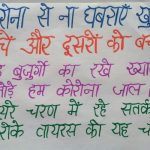 रोना से ना घबराएँ खु
चें और दूसरों को बच
बुजुर्गों का रखे ख्या
तोड़े हम कोरोना जाल
सरे चरण में रहे सतर्क
रोके वायरस की यह च